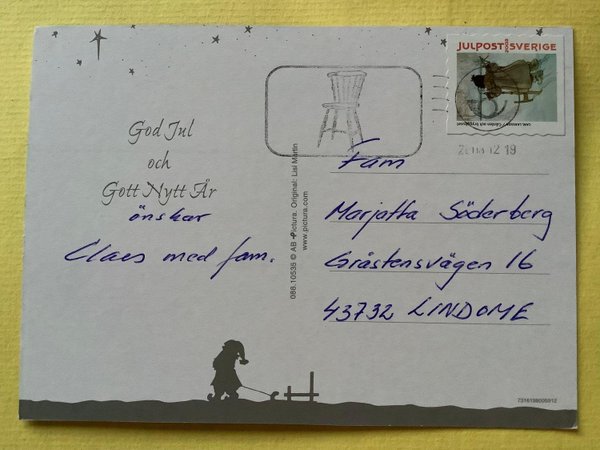 JULPOST SVERIGE
12 19
God Jul
och
Gott Nytt År
önskar
Claes med fam.
088.10535 © AB Pictura. Original: Lisi Martin
www.pictura.com
Fam
Marjatta Söderberg
Gråstensvägen 16
43732 LINDOME
7316198005912